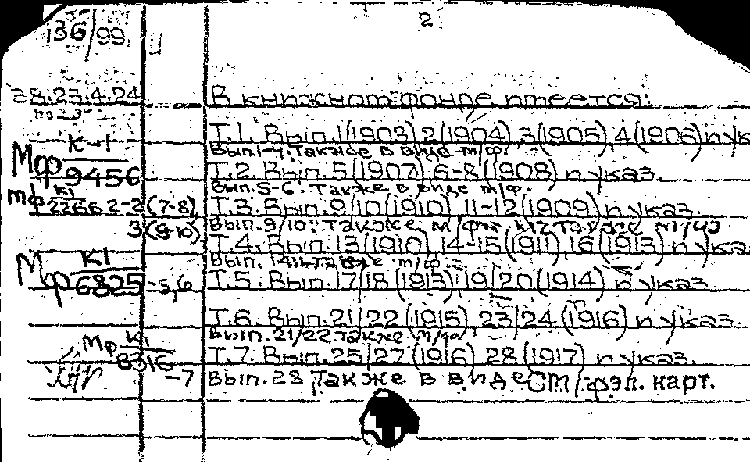 136/99
2
28.23.4.24
В книжном фонде имеется:
Т.1. Вып.1(1903) 2(1904), 3(1905), 4(1906) п ук
Вып.1-4. Также в виде м/ф.
Мф К-1 9456
Т.2. Вып.5(1907) 6-8(1908) п указ.
Вып.5-6: Также в виде м/ф.
мф К1 2266 2-2(7-8)
Т.3. Вып.9/10(1910) 11-12(1909) п указ.
3(9-10)
Вып.9/10: также м/ф
Т.4. Вып.13(1910) 14-15(1911) 16(1913) п указ
Вып. 14 также м/ф
Мф К1 6825-5,6
Т.5. Вып.17/18(1913) 19/20(1914) п указ.
Т.6. Вып.21/22(1915) 23/24(1916) п указ.
Вып.21/22 также м/ф
Мф К1 8316-7
Т.7. Вып.25/27(1916) 28(1917) п указ.
Вып.28 Также в виде СМ/фэл. карт.